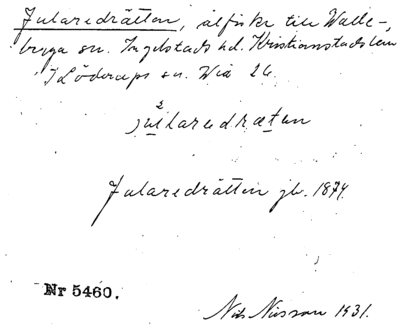 Jularedrätten, ålfiske till Valle-,
bryga sn. Ingelstads hd. Kristianstads län
I Löderups sn. Wid 26.
Jularedrätten jb. 1874.
Nr 5460.
Nils Nilsson 1931.